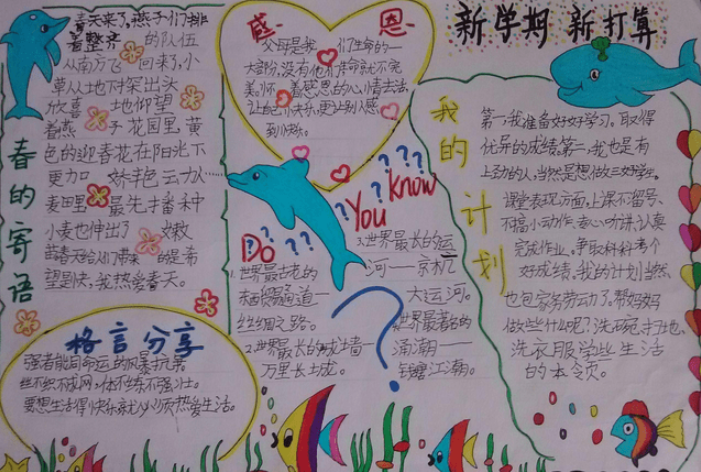 新学期 新打算
春的寄语
春天来了,燕子们排
着整齐 的队伍
从南方飞 回来了,小
草从土地下探出头
欣喜 地仰望
着燕 子花园里,黄
色的迎春花在阳光下
更加 娇艳动人……
麦田里 最先播种
小麦也伸出了 嫩
苗春天给人们带来 的是希
望是快,我热爱春天。
格言分享
强者能同命运的风暴抗争
丝不织不成网,体不练不强壮。
要想生活得快乐就必须热爱生活。
感 恩
父母是我 们生命的一
大部分,没有他们生命就不完
美。怀 着感恩的心情去活,
让自己快乐,更让别人感
到快乐。
Do You Know
1.世界最古老的
东西贸易通道一
丝绸之路。
2.世界最长的城墙一
万里长城。
3.世界最长的运
河一一京杭
大运河。
世界最著名的
涌潮一一
钱塘江潮。
我的计划
第一,我准备好好学习。取得
优异的成绩,第二,我也是有
上劲的人,当然是想做三好学生。
课堂表现方面,上课不留号、
不搞小动作、专心听讲、认真
完成作业。争取科科考个
好成绩。我的计划当然
也包家务劳动了。帮妈妈
做些什么呢?洗碗、扫地、
洗衣服学些生活
的本领。